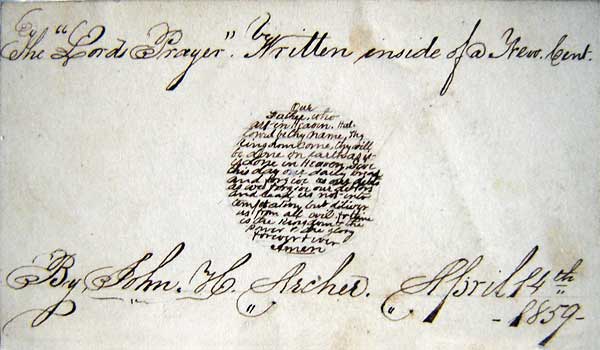 The "Lord's Prayer". Written inside of a New. Cent.
Our
Father, who
art in Heaven. Hal-
lowed be thy name, Thy
Kingdom Come, thy will
be done on Earth as it
is done in Heaven, Give
this day our daily bread
and forgive us our debts
as we forgive our debtors
and lead us not into
temptation, but deliver
us from all evil for thine
is the Kingdom & the
power & the glory
forever & ever
Amen
By, John. H. Archer. April 14th
-1859-